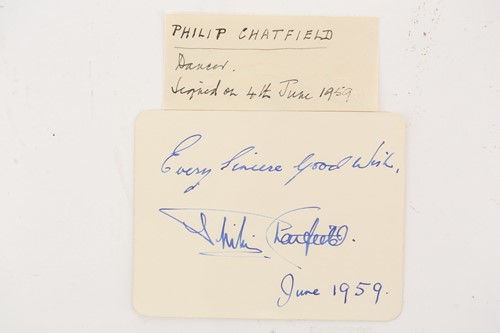 PHILIP CHATFIELD
Dancer.
Signed on 4th June 1959
Every Sincere Good Wish,
Philip Chatfield.
June 1959.